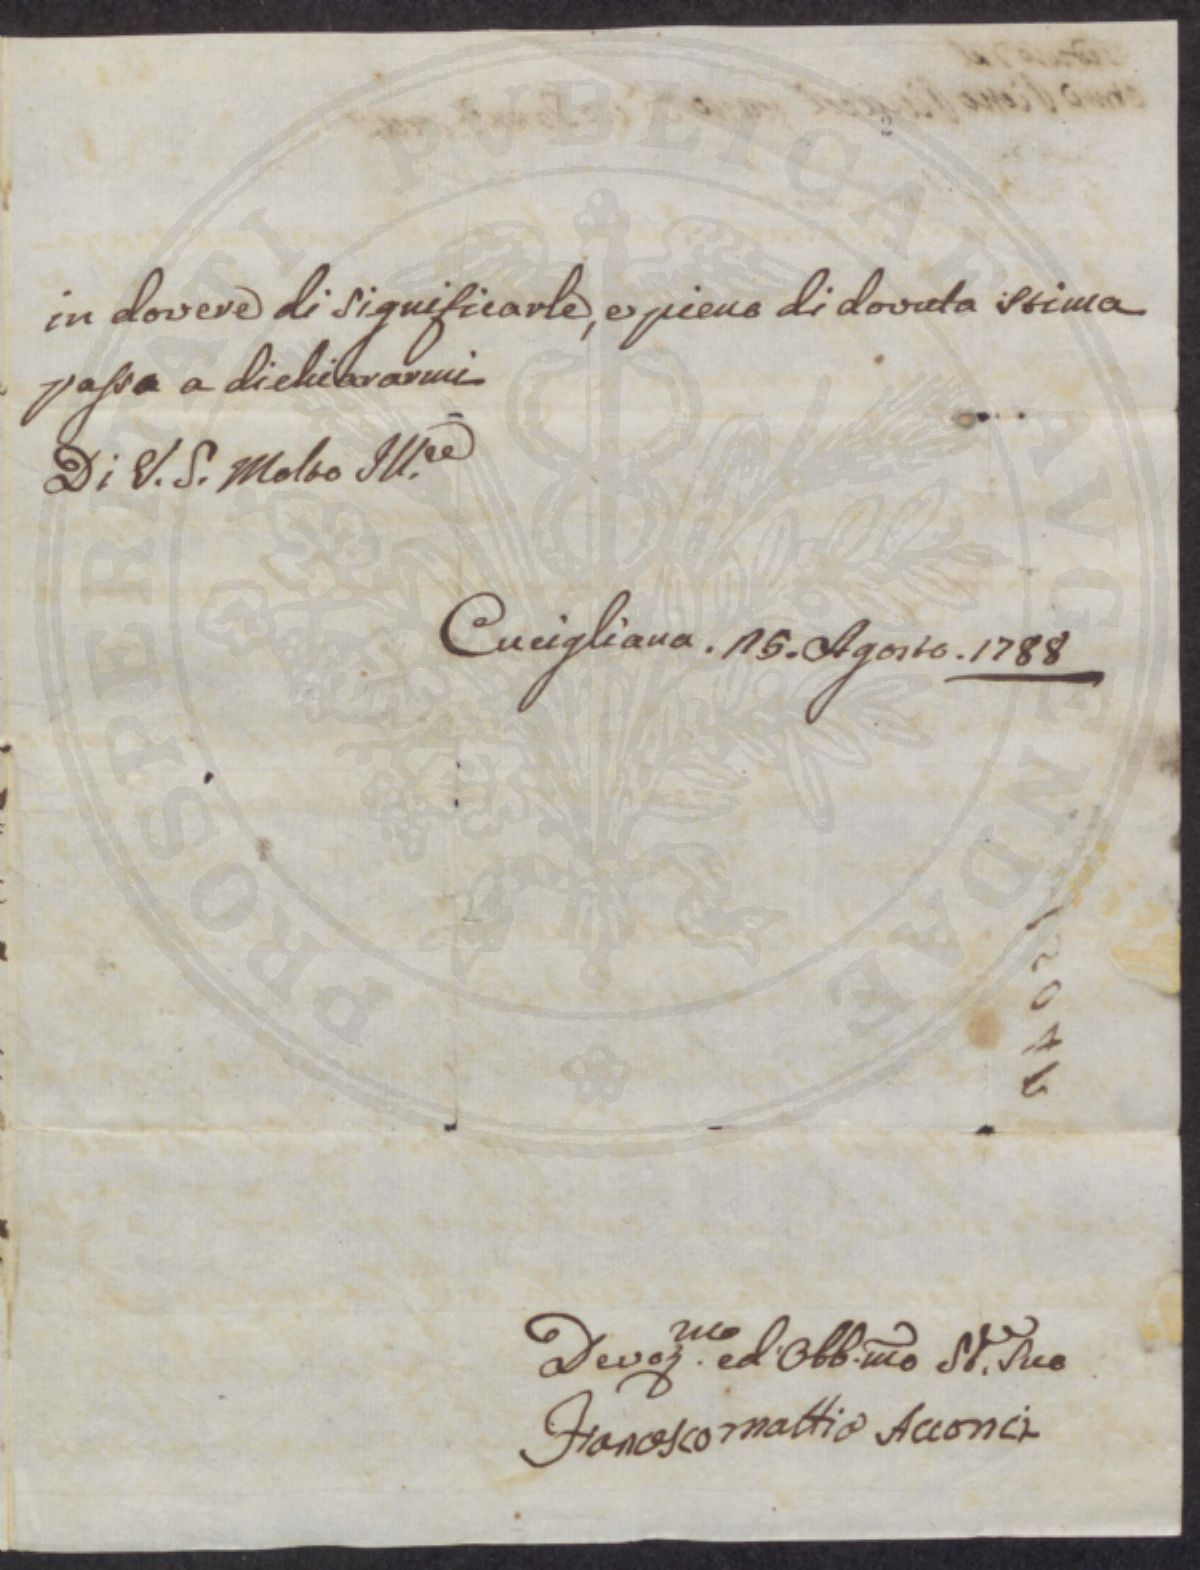 in dovere di significarle, e pieno di dovuta stima
passo a dichiararmi
Di V. S. Molto Ill.re
Cucigliana. 15. Agosto. 1788
Devoz.mo ed Obb.mo Sr. Suo
Francesco mattio Acconci
PROSPERITATI PUBLICAE AUGENDAE